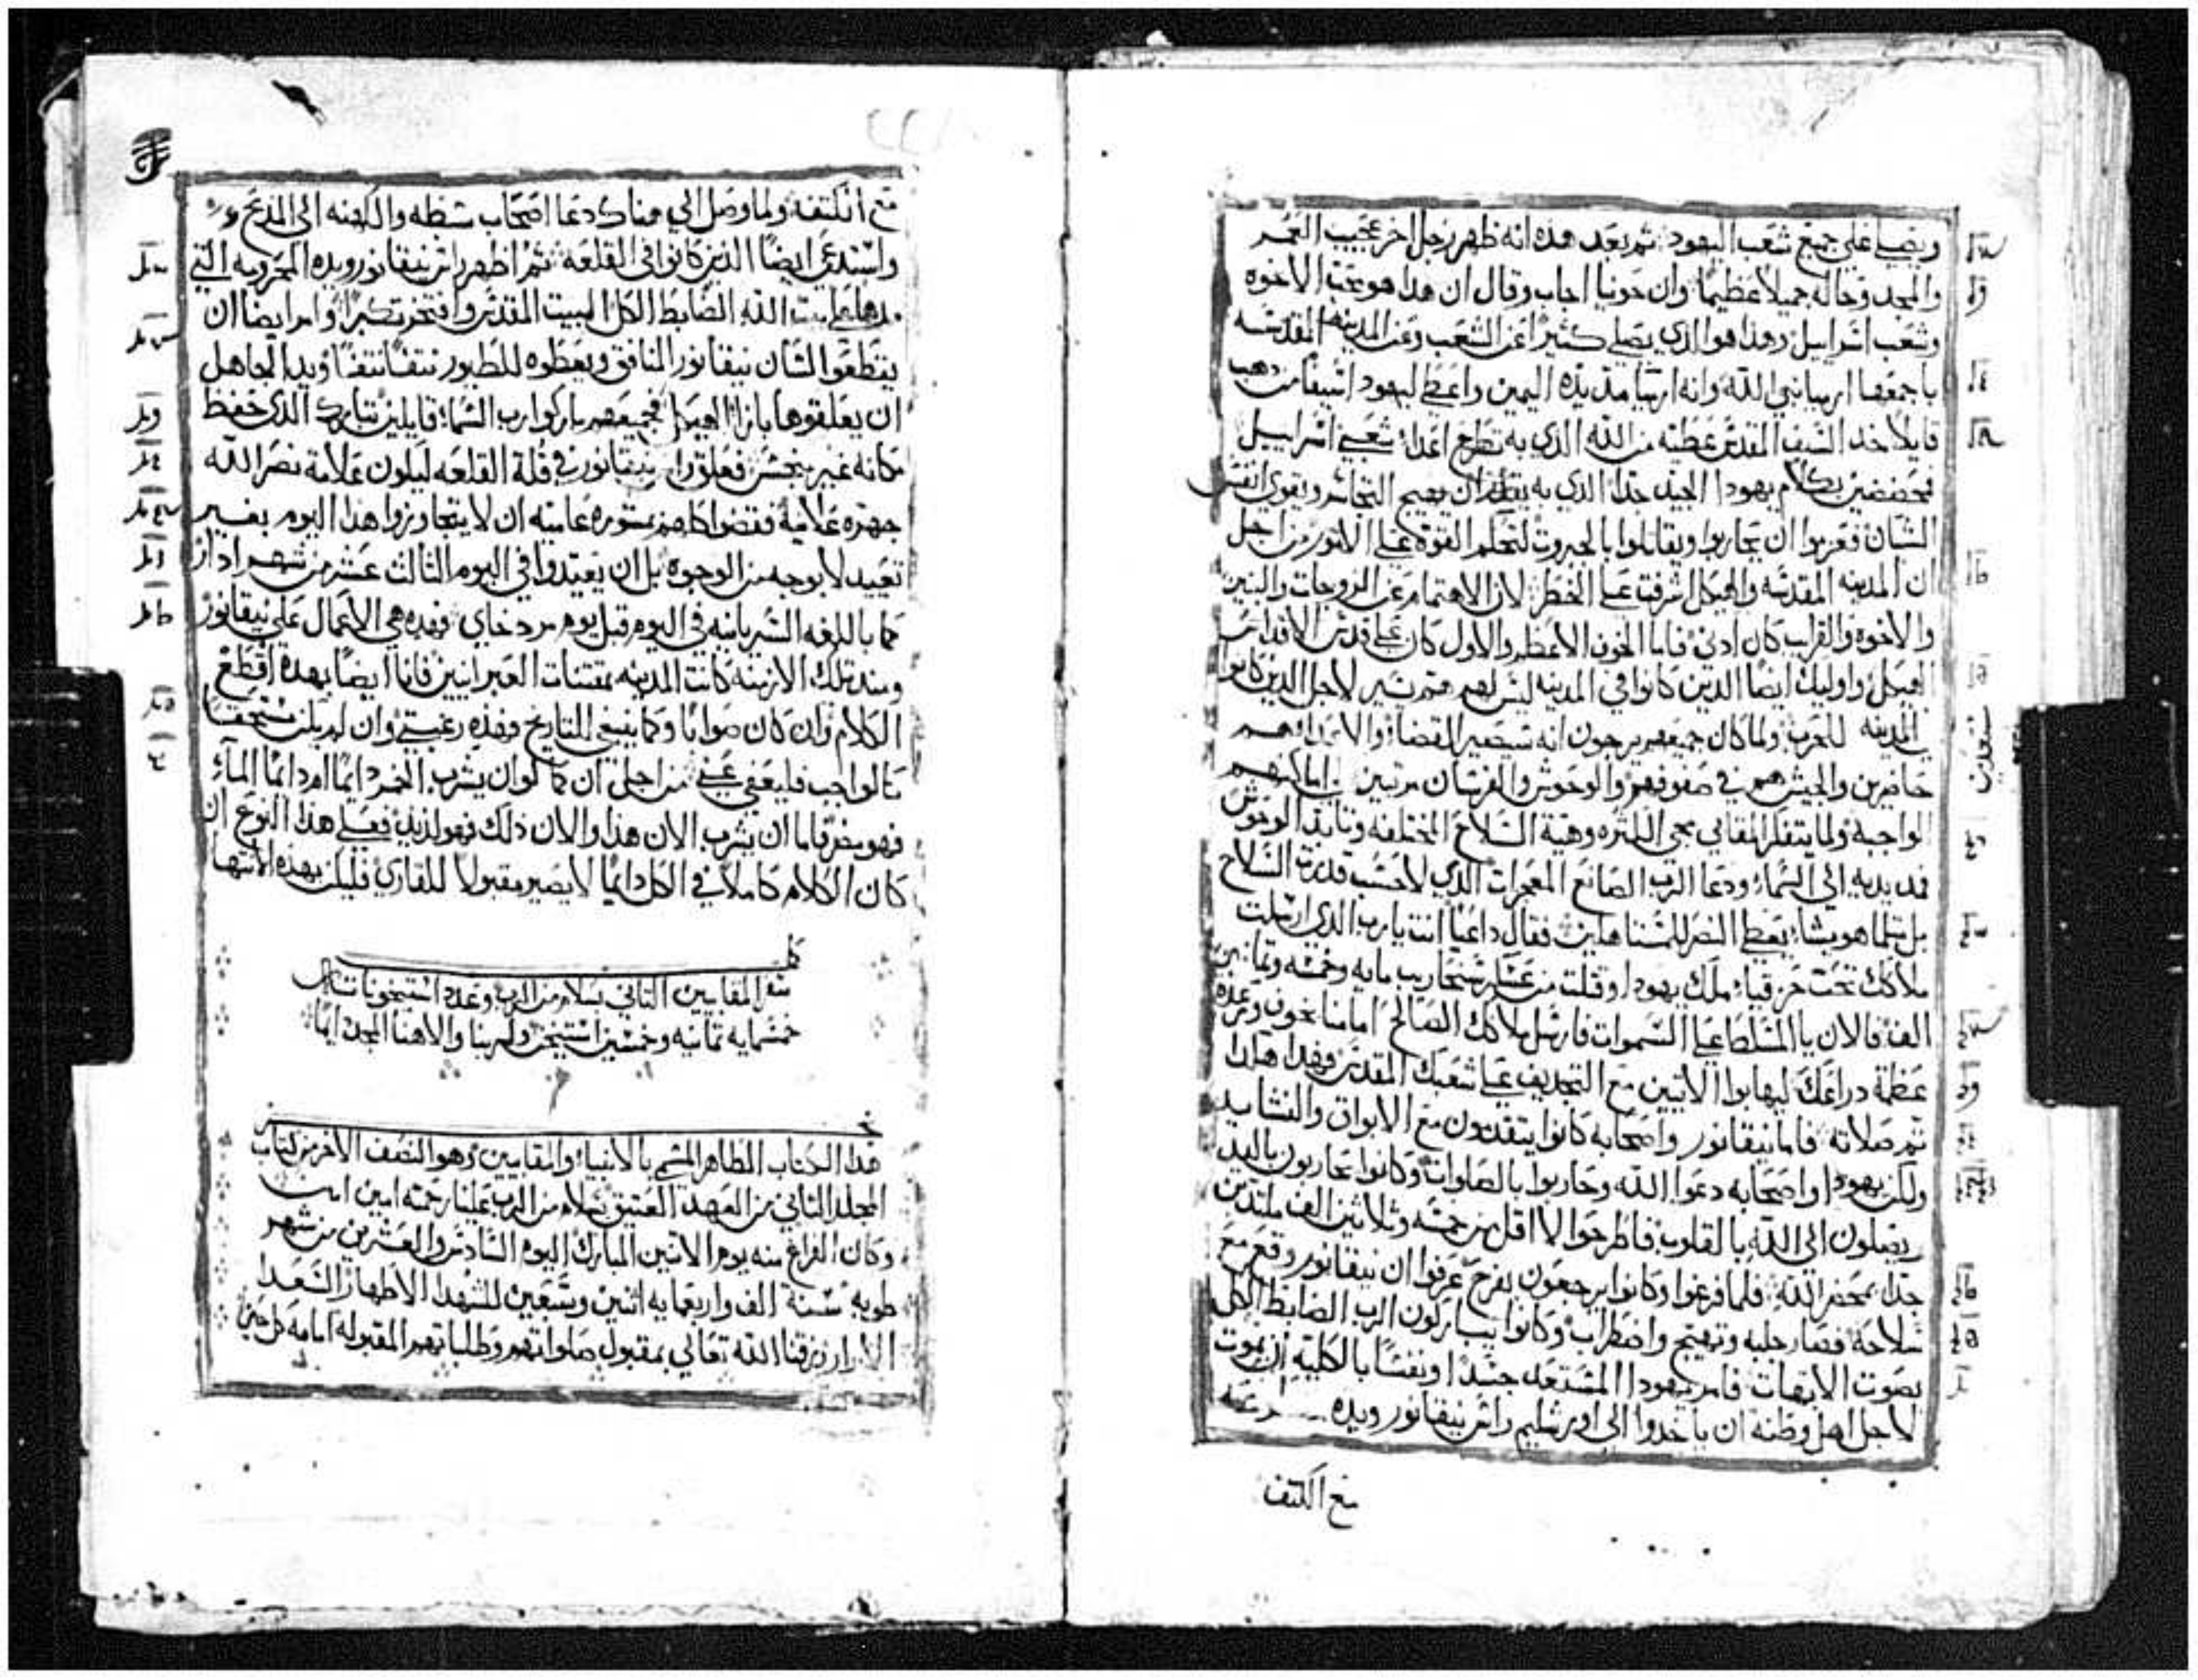 ويصلي علي جميع شعب اليهود. ثم بعد هذه انه ظهر رجل اخر عجيب العمر
والمجد وحاله جميلاً عظيماً. وان حونيا اجاب وقال ان هذا هو محب الاخوه
وشعب اسراييل وهذا هو الذي يصلي كثيراً عن الشعب وعن المدينه المقدسه
باجمعها ارميا نبي الله وانه ارميا مد يده اليمين واعطي ليهودا سيفاً من دهب
قايلاً خد السيف المقدس عطيه من الله الذي به تطرح اعداء شعبي اسراييل
بكلام يهودا الجيد جداً الذي به ان يهيج ويقوي انفس
الشبان فعزموا ان يحاربوا ويقاتلوا بالجبروت لتحكم القوه علي الامور من اجل
ان المدينه المقدسه والهيكل اشرفت علي الخطر لان الاهتمام عن الزوجات والبنين
والاخوه والقرايب كان ادني فاما الخوف الاعظم والاول كان علي قدس الاقداس
الهيكل واوليك ايضاً الذين كانوا في المدينه ليس لهم هم يسير لاجل الذين كانوا
المدينه للحرب ولما كان جميعهم يرجون انه سيصير القضاء والاعداء هم
حاضرين والجيش هم في صفوفهم والوحوش والفرسان مرتبين في اماكنهم
الواجبه ولما يتفكر المقابي مجي الكثره وهية السلاح المختلفه الوحوش
فمد يديه الي السماء ودعا الرب الصانع المعجزات الذي لا حسب قدرت السلاح
بل مثلما هو يشاء يعطي النصر للمستاهلين فقال داعياً انت يا رب الذي ارسلت
ملاكك تحت حزقياء ملك يهودا وقتلت من عسكر سنحاريب مايه وخمسه وتمانين
الف فالان يا المسلط علي السموات فارسل ملاكك الصالح امامنا بخوف ورعده
عظمة دراعك ليهابوا الاتيين مع التجديف علي شعبك المقدس وهذا هكذا
تم صلاته فاما نيقانور واصحابه كانوا يتقدمون مع الابواق والنشايد
ولكن يهودا واصحابه دعوا الله وحاربوا بالصلوات وكانوا يحاربون باليد
ويصلون الي الله بالقلوب فاطرحوا لا اقل من خمسه وثلاثين الف ملتدين
جداً بمحضر الله فلما فرغوا وكانوا يرجعون بفرح عرفوا ان نيقانور وقع مع
سلاحه فصار جلبه وتهيج واضطراب وكانوا يباركون الرب الضابط الكل
بصوت الابهات فامر يهودا المستعد جسداً ونفساً بالكليه ان يموت
لاجل اهل وطنه ان ياخدوا الي اورشليم راس نيقانور ويده
مع الكتف
مع الكتف. ولما وصل الي هناك دعا اصحاب سبطه والكهنه الي المدبح
واستدعي ايضاً الذين كانوا في القلعه ثم اظهر راس نيقانور ويده المحرومه التي
مدها علي بيت الله الضابط الكل البيت المقدس وافتخر تكبراً وامر ايضاً ان
يقطعوا لسان نيقانور المنافق ويعطوه للطيور نتفاً نتفاً ويد الجاهل
ان يعلقوها بازاء الهيكل فجميعهم باركوا رب السماء قايلين تبارك الذي حفظ
مكانه غير منجس فعلق راس نيقانور في قلة القلعه ليكون علامة نصر الله
جهره علامة فقضوا كلهم بمشوره عاميه ان لا يتجاوزوا هذا اليوم بغير
تعييد لا بوجه من الوجوه بل ان يعيدوا في اليوم الثالث عشر من شهر ادار
كما باللغه السريانيه في اليوم قبل يوم مردخاي فهذه هي الاعمال علي نيقانور
ومند تلك الازمنه كانت المدينه بمقتنات العبرانيين فانا ايضاً بهده اقطع
الكلام وان كان صواباً وكما ينبغي التاريخ فهذه رغبتي وان لم يكن مستحقاً
كالواجب فليعفي عني من اجل ان كما لو ان يشرب الخمر دايماً ام دايماً الماء
فهو مضر فاما ان يشرب الان هذا والان ذلك فهو لذيذ فعلي هذا النوع ان
كان الكلام كاملاً في الكل دايماً لا يصير مقبولاً للقاري فليكن بهذه الانتها
كمل
سفر المقابيين التاني بسلام من الرب وعدد استيخونات
خمسمايه تمانيه وخمسين استيخن ولربنا والاهنا المجد دايماً
هذا الكتاب الطاهر المسمي بالانبياء والمقابيين وهو النصف الاخر من كتاب
المجلد التاني من العهد العتيق بسلام من الرب علينا رحمته امين امين
وكان الفراغ منه يوم الاتنين المبارك اليوم السادس والعشرين من شهر
طوبه سنة الف واربعمايه اتنين وتسعين للشهدا الاطهار السعدا
الابرار رزقنا الله تعالي بمقبول صلواتهم وطلباتهم المقبوله امامه كل حين